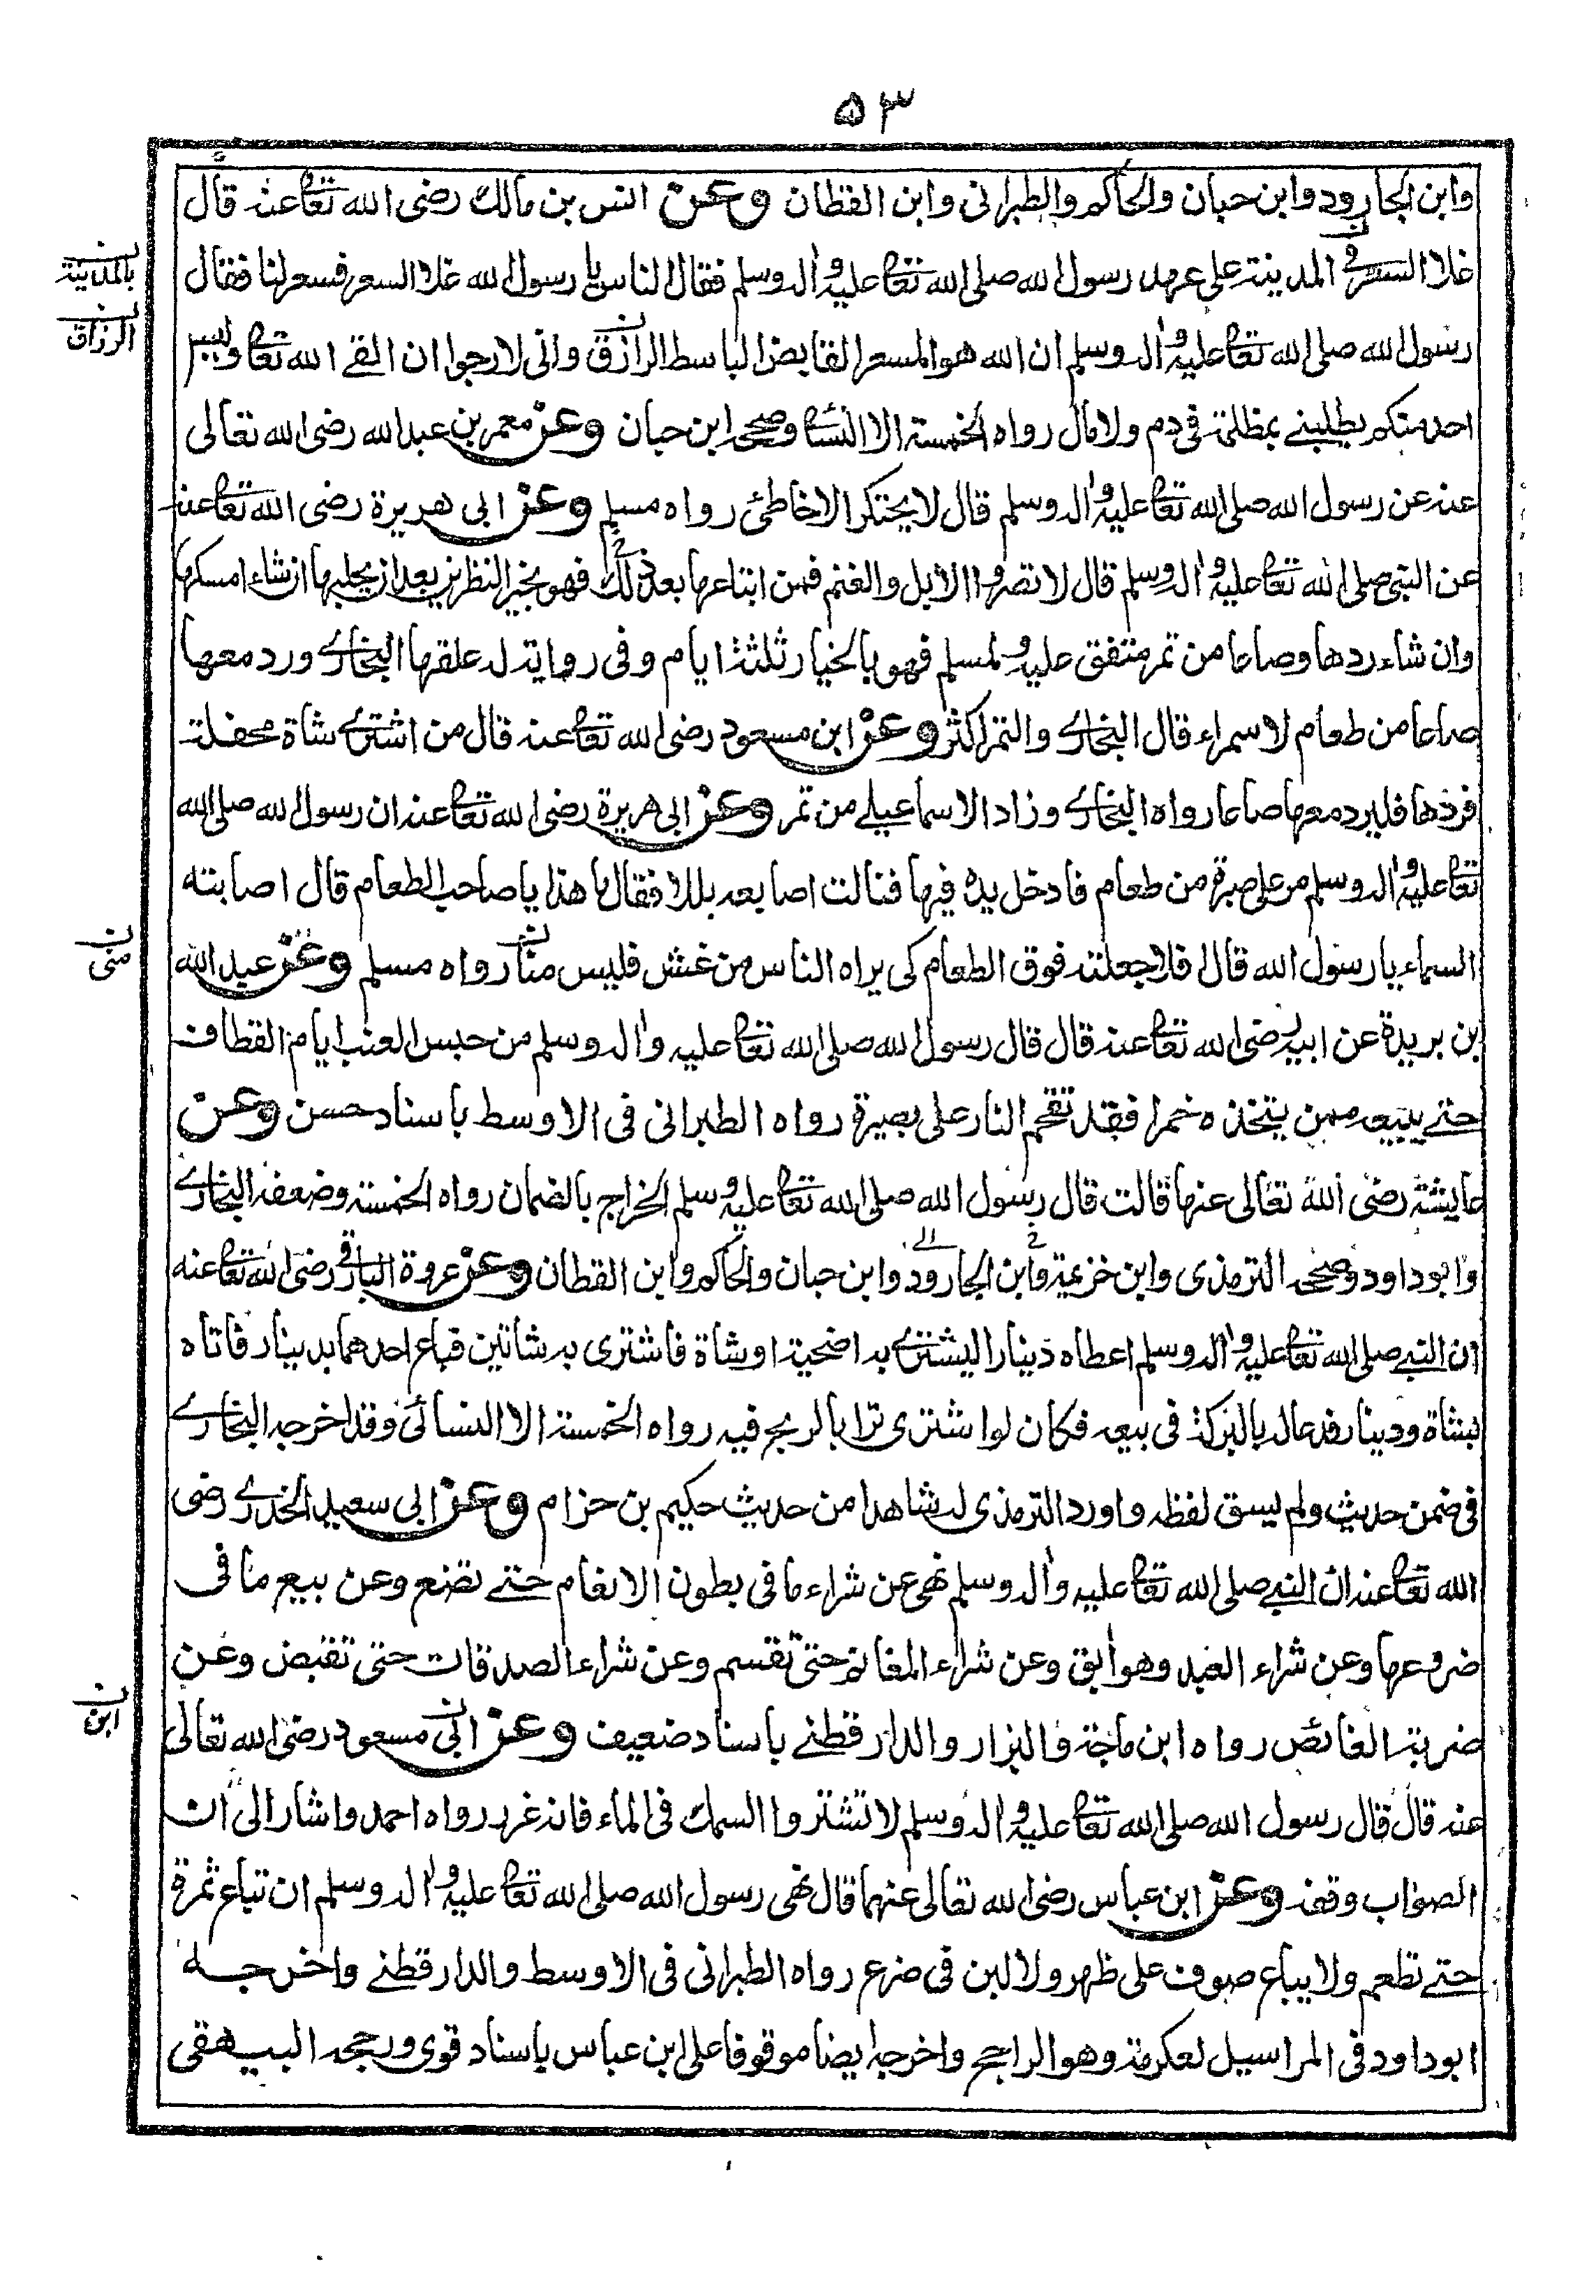 ٥٣
وابن الجارود وابن حبان والحاكم والطبرانی وابن القطان وعن انس بن مالك رضی الله تعا عنه قال
غلا السعر فی المدینة علی عهد رسول الله صلی الله تعا علیه واله وسلم فقال الناس یا رسول الله غلا السعر فسعر لنا فقال
بالمدینة
رسول الله صلی الله تعا علیه واله وسلم ان الله هو المسعر القابض الباسط الرازق وانی لارجوا ان القے الله تعا ولیس
الرزاق
احد منكم یطلبنے بمظلمة فی دم ولا مال رواه الخمسة الا النسا وصححه ابن حبان وعن معمر بن عبد الله رضی الله تعالی
عنه عن رسول الله صلی الله تعا علیه واله وسلم قال لا یحتكر الا خاطئ رواه مسلم وعن ابی هریرة رضی الله تعا عنه
عن النبی صلی الله تعا علیه واله وسلم قال لا تصروا الابل والغنم فمن ابتاعها بعد ذلك فهو بخیر النظرین بعد ان یحلبها ان شاء امسكها
وان شاء ردها وصاعا من تمر متفق علیه ولمسلم فهو بالخیار ثلثة ایام وفی روایة له علقها البخاری ورد معها
صاعا من طعام لا سمراء قال البخاری والتمر اكثر وعن ابن مسعود رضی الله تعا عنه قال من اشتری شاة محفلة
فردها فلیرد معها صاعا رواه البخاری وزاد الاسماعیلے من تمر وعن ابی هریرة رضی الله تعا عنه ان رسول الله صلی الله
تعا علیه واله وسلم مر علی صبرة من طعام فادخل یده فیها فنالت اصابعه بللا فقال ما هذا یا صاحب الطعام قال اصابته
السماء یا رسول الله قال فلا جعلته فوق الطعام كی یراه الناس من غش فلیس منا رواه مسلم وعن عبد الله
منی
بن بریدة عن ابیه رضی الله تعا عنه قال قال رسول الله صلی الله تعا علیه واله وسلم من حبس العنب ایام القطاف
حتے یبیعه ممن یتخذه خمرا فقد تقحم النار علی بصیرة رواه الطبرانی فی الاوسط باسناد حسن وعن
عایشة رضی الله تعالی عنها قالت قال رسول الله صلی الله تعا علیه وسلم الخراج بالضمان رواه الخمسة وضعفه البخاری
وابو داود وصححه الترمذی وابن خزیمة وابن الجارود وابن حبان والحاكم وابن القطان وعن عروة البارقی رضی الله تعا عنه
ان النبے صلی الله تعا علیه واله وسلم اعطاه دینارا لیشتری به اضحیة او شاة فاشتری به شاتین فباع احدهما بدینار فاتاه
بشاة ودینار فدعا له بالبركة فی بیعه فكان لو اشتری ترابا لربح فیه رواه الخمسة الا النسائی وقد اخرجه البخاری
فی ضمن حدیث ولم یسق لفظه واورد الترمذی له شاهدا من حدیث حكیم بن حزام وعن ابی سعید الخدری رضی
الله تعا عنه ان النبے صلی الله تعا علیه واله وسلم نهی عن شراء ما فی بطون الانعام حتے تضع وعن بیع ما فی
ضروعها وعن شراء العبد وهو ابق وعن شراء المغانم حتی تقسم وعن شراء الصدقات حتی تقبض وعن
ضربة الغائص رواه ابن ماجة والبزار والدار قطنے باسناد ضعیف وعن ابی مسعود رضی الله تعالی
ابن
عنه قال قال رسول الله صلی الله تعا علیه واله وسلم لا تشتروا السمك فی الماء فانه غرر رواه احمد واشار الی ان
الصواب وقفه وعن ابن عباس رضی الله تعالی عنهما قال نهی رسول الله صلی الله تعا علیه واله وسلم ان تباع ثمرة
حتے تطعم ولا یباع صوف علی ظهر ولا لبن فی ضرع رواه الطبرانی فی الاوسط والدار قطنے واخرجه
ابو داود فی المراسیل لعكرمة وهو الراجح واخرجه ایضا موقوفا علی ابن عباس باسناد قوی ورجحه البیهقی